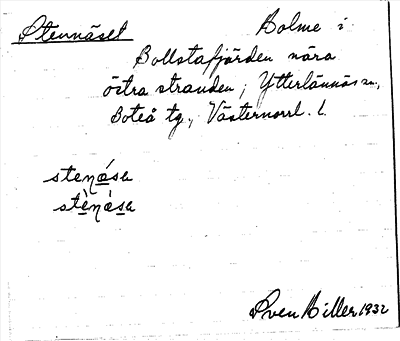 Stennäset
Holme i
Bollstafjärden nära
östra stranden; Ytterlännäs sn,
Boteå tg, Västernorrl. l.
stenǽsa
stènǽsa
Sven Hiller 1932